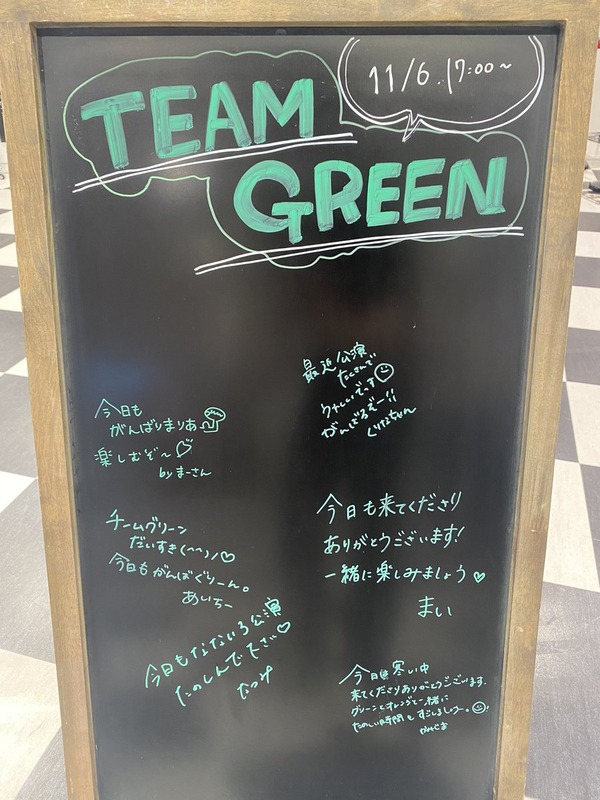 TEAM
GREEN
11/6. 17:00~
最近公演
たくさんで
うれしいでっす
がんばるぞー!!
くりたちゃん
今日も
がんばりまりあ
楽しむぞ〜
by まーさん
チームグリーン
だいすき(^^)ノ♡
今日もがんばぐりーん。
あいちー
今日も来てくださり
ありがとうございます!
一緒に楽しみましょう♡
まい
今日もなないろ公演
たのしんで下さい♡
なつみ
今日は寒い中
来てくださりありがとうございます。
グリーンとオレンジと一緒に
たのしい時間をすごしましょう〜。